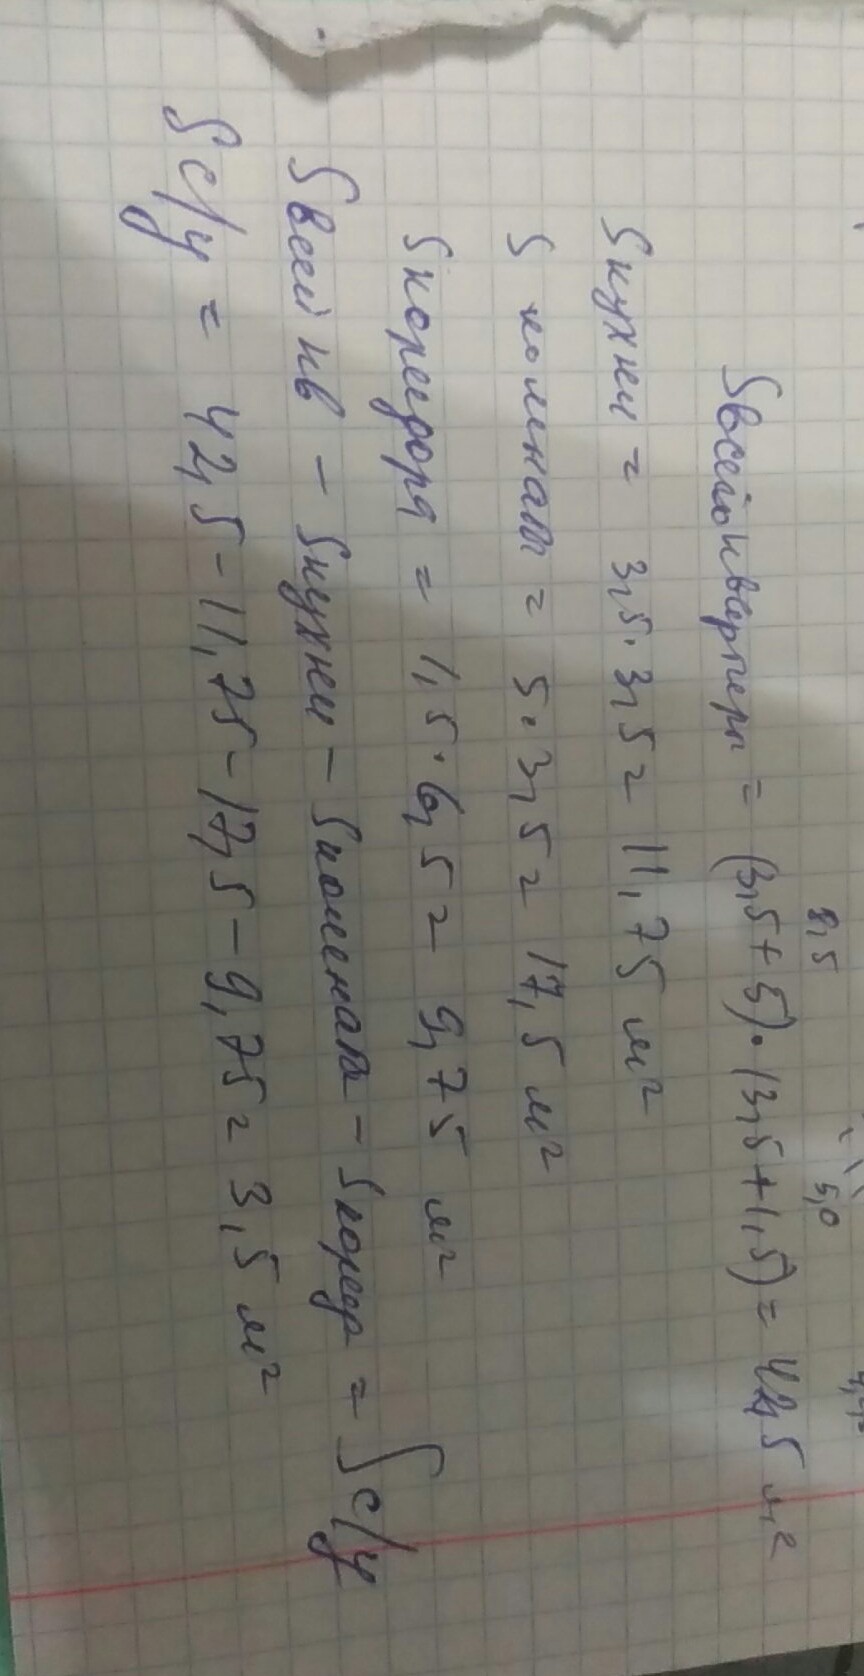 8,5 5,0
Sвсей квартиры = (3,5+5)·(3,5+1,5) = 42,5 м²
Sкухни = 3,5·3,5 = 11,75 м²
S комнат = 5·3,5 = 17,5 м²
Sкоридора = 1,5·6,5 = 9,75 м²
Sвсей кв - Sкухни - Sкомнат - Sкорид = Sс/у
Sс/у = 42,5-11,75-17,5-9,75 = 3,5 м²